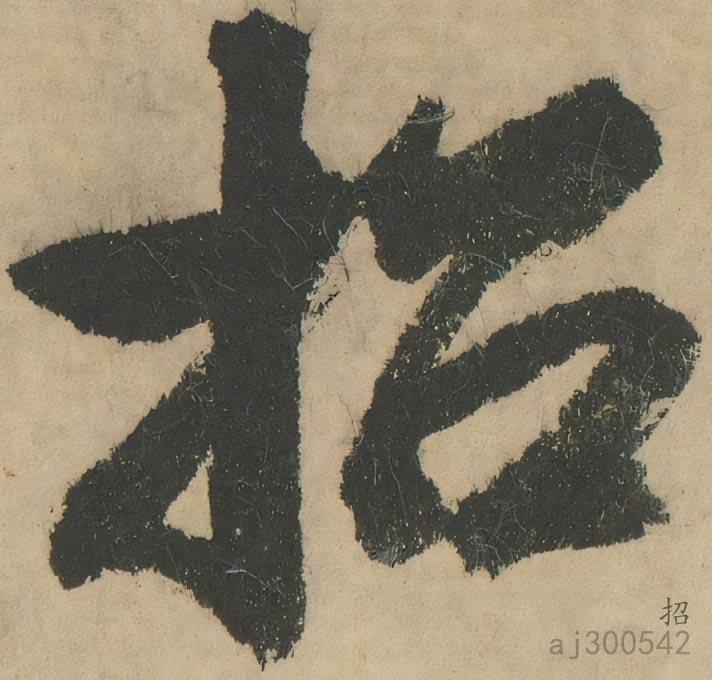 招
招
aj300542